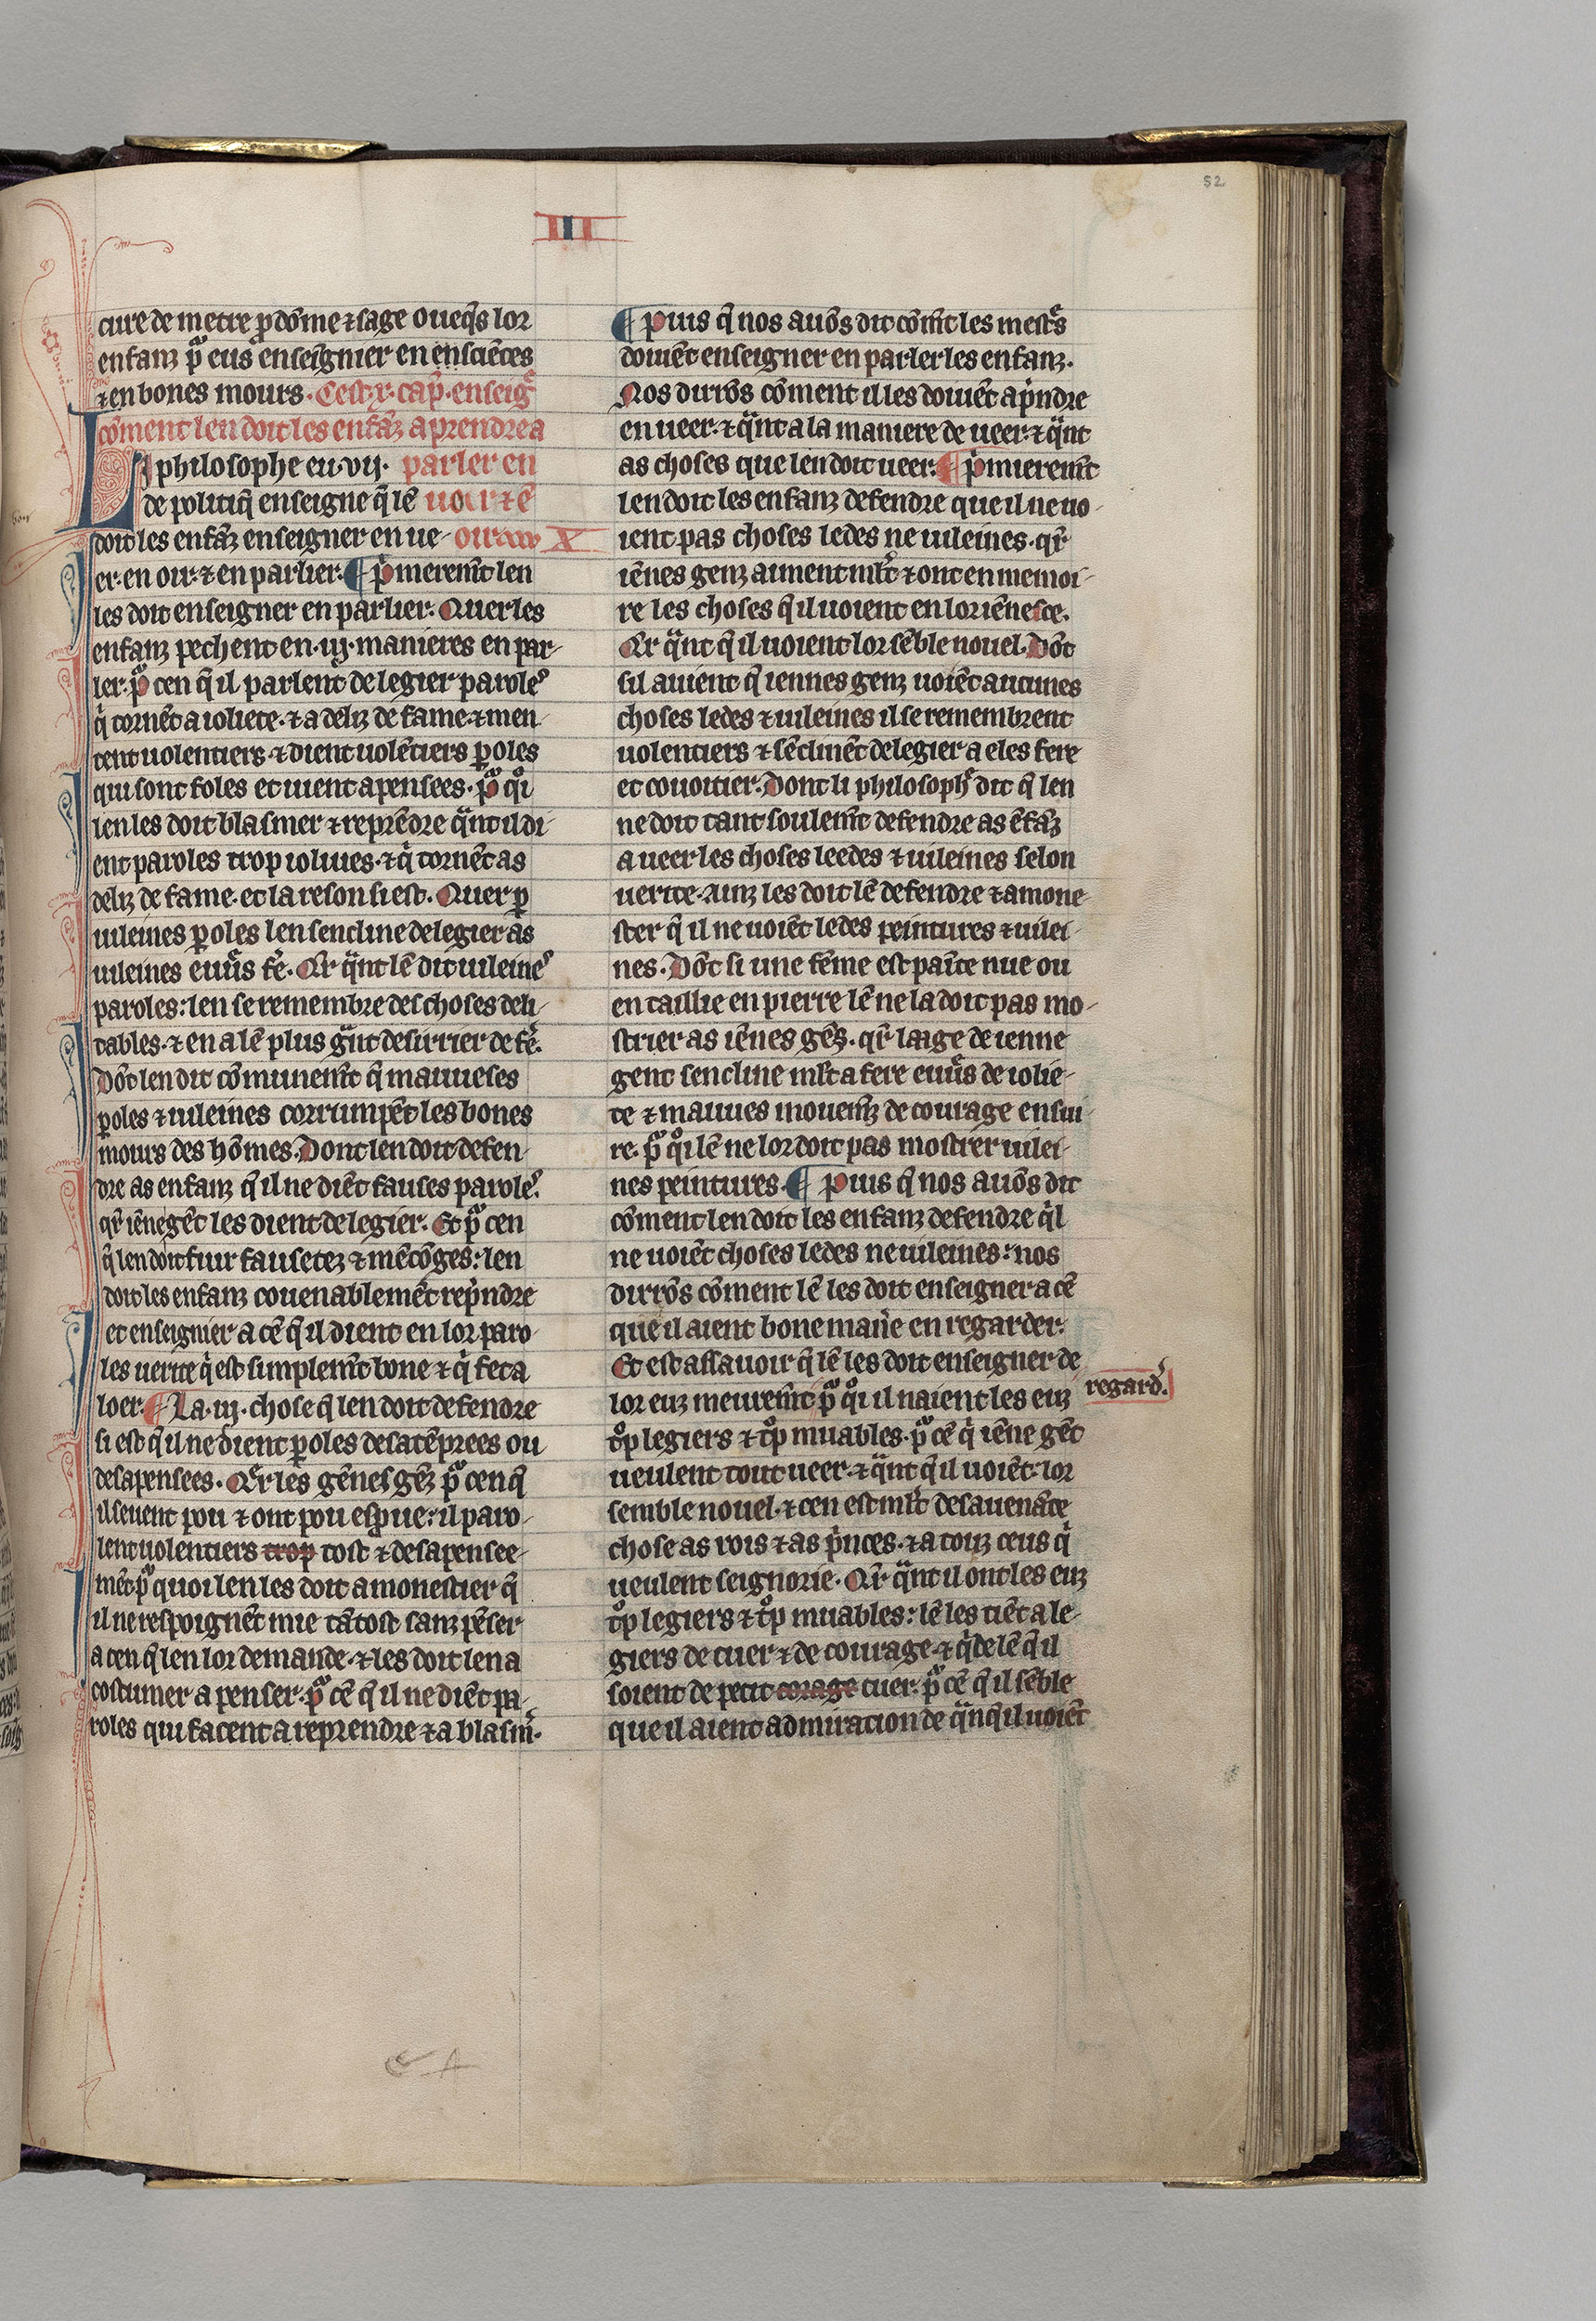 52
III
cure de metre ꝓdōme ⁊ sage oueq̄s lor
enfanz pͣ eus enseignier en ensciēces
⁊ en bones mours. Cest .x. cap̄. enseigͤ
cōment len doit les enfāz aprendre a
Li philosophe eu .vij. parler en
de politiq̄ enseigne q̄ lē uoer ⁊ ē
doit les enfāz enseigner en ue- oir X
er. en oir. ⁊ en parlier. ¶ pͥmeremēt len
les doit enseigner en parlier. Quer les
enfanz pechent en .iij. manieres en par-
ler. pͣ cen q̄ il parlent de legier paroleˢ
qͥ tornēt a ioliete. ⁊ a deliz de fame. ⁊ men-
tent uolentiers ⁊ dient uolētiers ꝑoles
qui sont foles et uient apensees. pͣ qͦi
len les doit blasmer ⁊ reprēdre qͣnt il di-
ent paroles trop iolives. ⁊ qͥ tornēt as
deliz de fame. et la reson si est. Quer ꝑ
uileines ꝑoles len sencline de legier as
uileines euuͣs fē. Qr qͣnt lē dit uileineˢ
paroles: len se remembre des choses deli-
tables. ⁊ en a lē plus gͣnt desirrier de fē.
Dōt len dit cōmunemēt q̄ mauueses
ꝑoles ⁊ uileines corrumpēt les bones
mours des hōmes. Dont len doit defen-
dre as enfanz q̄ il ne diēt fauses paroleˢ.
qr̄ iēne gēt les dient de legier. Et pͣ cen
q̄ len doit fuir fausetez ⁊ mēcōges: len
doit les enfanz couenablemēt repͥndre
et enseignier a cē q̄ il dient en lor paro-
les uerite qͥ est simplemēt bone ⁊ qͥ fet a
loer. ¶ La .iij. chose q̄ len doit defendre
si est q̄ il ne dient ꝑoles desatēprees ou
desapensees. Qr̄ les gēnes gēz pͣ cen q̄
il seuent pou ⁊ ont pou espͥue: il paro-
lent uolentiers trop tost ⁊ desapensee-
mēt pͣ quoi len les doit amonestier q̄
il ne respoignēt mie tātost sanz pēser
a cen q̄ len lor demande. ⁊ les doit len a
costumer a penser. pͣ cē q̄ il ne diēt pa-
roles qui facent a reprendre ⁊ a blasm̄.
¶ Puis q̄ nos auōs dit cōmēt les mestͤs
doiuēt enseigner en parler les enfanz.
Nos dirrōs cōment il les doiuēt apͥndre
en ueer. ⁊ qͣnt a la maniere de ueer. ⁊ qͣnt
as choses que len doit ueer. ¶ pͥmieremēt
len doit les enfanz defendre que il ne uo-
ient pas choses ledes ne uileines. qr̄
iēnes genz aiment ml̄t ⁊ ont en memoi-
re les choses q̄ il uoient en lor iēnesce.
Qr qͣnt q̄ il uoient lor sēble nouel. Dōt
sil auient q̄ iennes genz uoiēt aucunes
choses ledes ⁊ uileines il se remembrent
uolentiers ⁊ sēclinēt de legier a eles fere
et couoitier. Dont li philosoph̄ dit q̄ len
ne doit tant soulemēt defendre as ēfāz
a ueer les choses leedes ⁊ uileines selon
uerite. Ainz les doit lē defendre ⁊ amone-
ster q̄ il ne uoiēt ledes peintures ⁊ uilei-
nes. Dōt si une fēme est paīte nue ou
entaillie en pierre lē ne la doit pas mo-
strier as iēnes gēs. qr̄ laage de ienne
gent sencline ml̄t a fere euuͣs de iolie-
te ⁊ mauues mouemēz de courage ensui-
re. pͣ qͦi lē ne lor doit pas mostrer uilei-
nes peintures. ¶ Puis q̄ nos auōs dit
cōment len doit les enfanz defendre qͥl
ne uoiēt choses ledes ne uileines: nos
dirrōs cōment lē les doit enseigner a cē
que il aient bone maīe en regarder.
Et est assauoir q̄ lē les doit enseigner de regard̄.
lor euz meuremēt pͣ qͦi il naient les euz
tͦp legiers ⁊ tͦp muables. pͣ cē qͥ iēne gēt
ueulent tout ueer. ⁊ qͣnt q̄ il uoiēt: lor
semble nouel. ⁊ cen est ml̄t desauenāte
chose as rois ⁊ as pͥnces. ⁊ a touz ceus qͥ
ueulent seignorie. Qr̄ qͣnt il ont les euz
tͦp legiers ⁊ tͦp muables: lē les tiēt a le-
giers de cuer ⁊ de courage. ⁊ qͥdelē q̄ il
soient de petit corage cuer. pͣ cē q̄ il sēble
que il aient admiration de qͣnq̄ il uoiēt